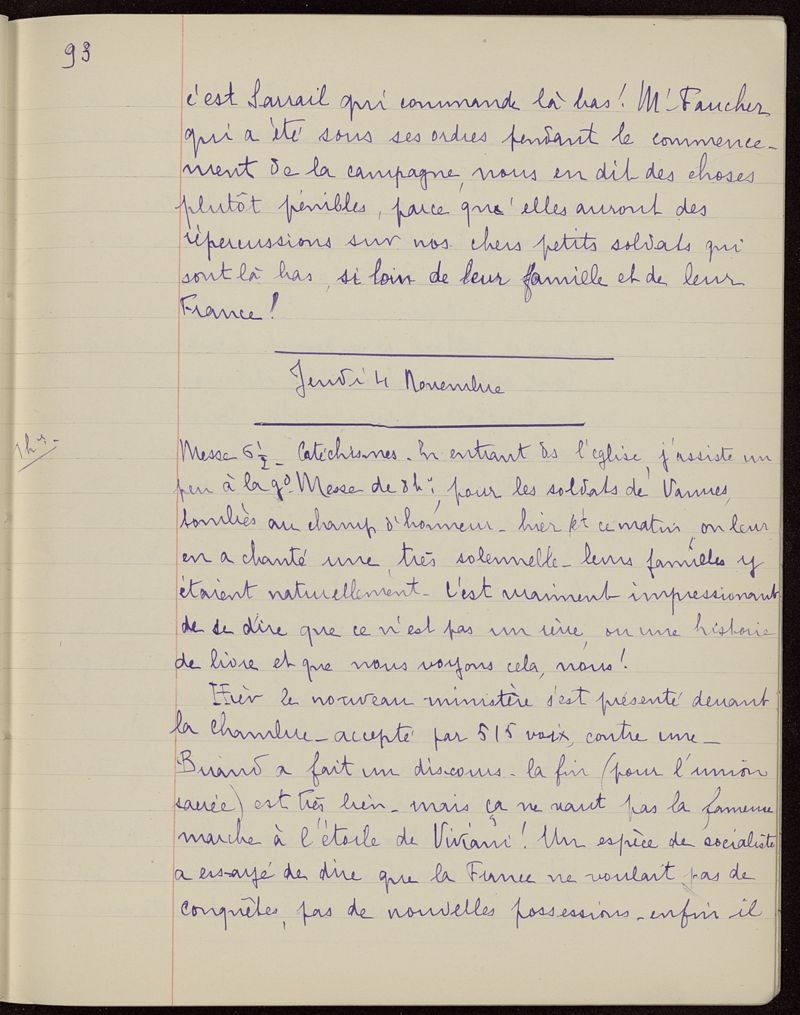 93
c'est Sarrail qui commande là bas! Mr Faucher
qui a été sous ses ordres pendant le commence-
ment de la campagne, nous en dit des choses
plutôt pénibles, parce qu'elles auront des
répercussions sur nos chers petits soldats qui
sont là bas, si loin de leur famille et de leur
France!
Jeudi 4 Novembre
Messe 6 1/2 - Catéchismes. En entrant ds l'église, j'assiste un
peu à la gd Messe de 8h, pour les soldats de Vannes,
tombés au champ d'honneur - hier et ce matin, on leur
en a chanté une très solennelle - leurs familles y
étaient naturellement - C'est vraiment impressionant
de se dire que ce n'est pas un rêve, ou une histoire
de livre et que nous voyons cela, nous!
Hier le nouveau ministère s'est présenté devant
la Chambre - accepté par 515 voix, contre une -
Briand a fait un discours - la fin (pour l'union
sacrée) est très bien - mais ça ne vaut pas la fameuse
marche à l'étoile de Viviani! Un espèce de socialiste
a essayé de dire que la France ne voulait pas de
conquêtes, pas de nouvelles possessions - enfin il